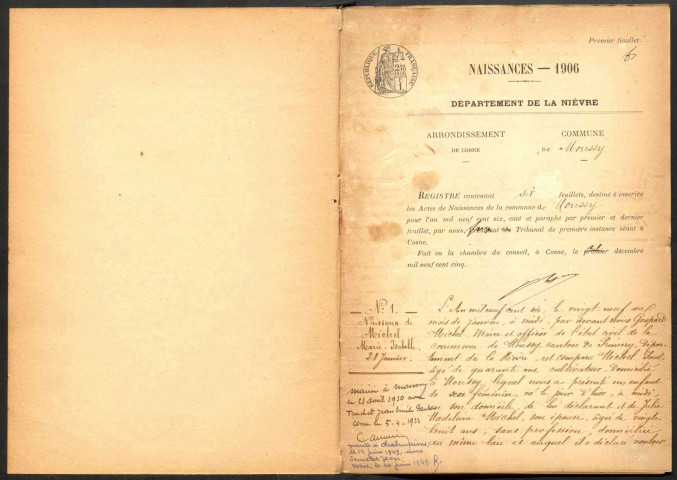 Premier feuillet.
RÉPUBLIQUE FRANÇAISE
NAISSANCES — 1906
DÉPARTEMENT DE LA NIÈVRE
ARRONDISSEMENT
DE COSNE
COMMUNE
de Moussy
REGISTRE contenant six feuillets, destiné à inscrire
les Actes de Naissances de la commune de Moussy
pour l'an mil neuf cent six, coté et paraphé par premier et dernier
feuillet, par nous, Tribunal de première instance séant à
Cosne.
Fait en la chambre du conseil, à Cosne, le décembre
mil neuf cent cinq.
N° 1.
Naissance de
Michel
Marie
28 Janvier.
L'an mil neuf cent six, le vingt-neuf du
mois de janvier, à midi, par devant nous Gaspard
Michel Maire et officier de l'état civil de la
commune de Moussy canton de Prémery, Dépar-
tement de la Nièvre, est comparu Michel
âgé de quarante ans, cultivateur, domicilié
à Moussy, lequel nous a présenté un enfant
de sexe féminin, né le jour d'hier, à midi,
en son domicile, de lui déclarant et de Julie
Madeleine Michel, son épouse, âgée de vingt
huit ans, sans profession, domiciliée
en même lieu et auquel il a déclaré vouloir
le 23 avril 1930 avec
Jean Emile
le 5-4-1931
le juin 1949